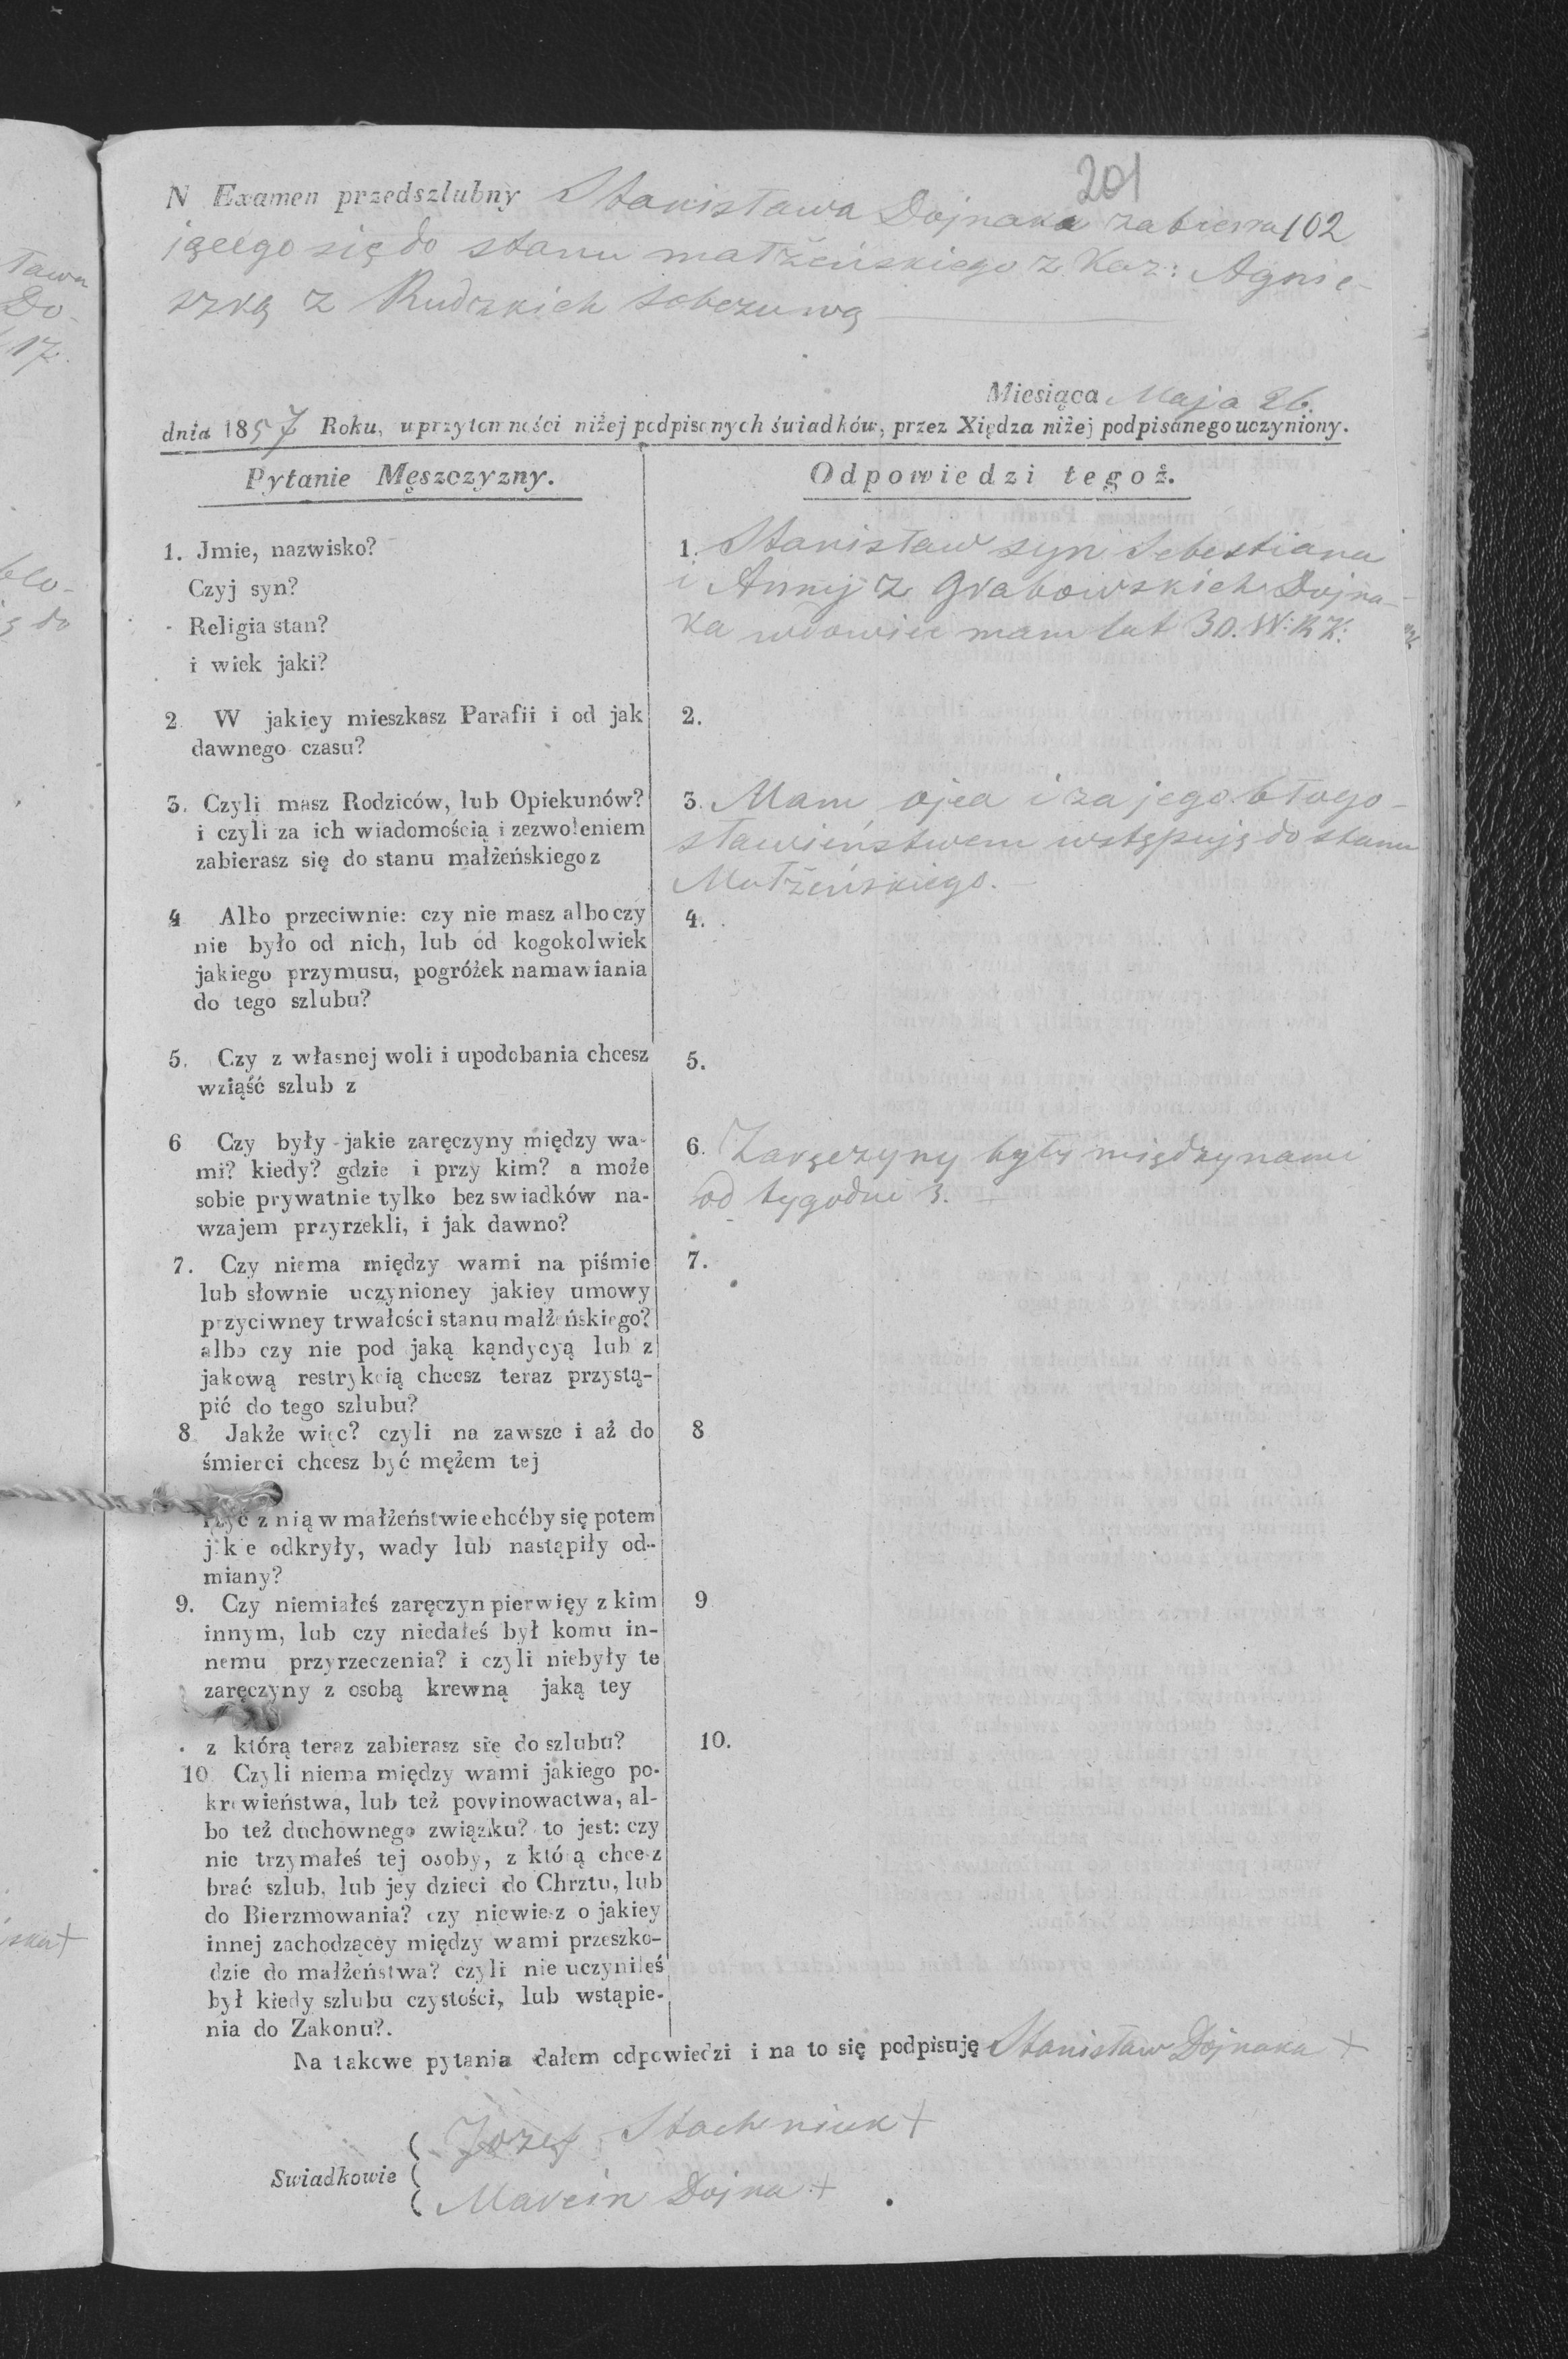 201
N Examen przedszlubny Stanisława Dojnaka zabiera 102
jącego się do stanu małżeńskiego z Kaz: Agnie-
szką z Rudzkich Sobczuwą
Miesiąca Maja 26.
dnia 1857 Roku, w przytomności niżej podpisanych świadków, przez Xiędza niżej podpisanego uczyniony.
Pytanie Męszczyzny.
1. Jmie, nazwisko?
Czyj syn?
Religia stan?
i wiek jaki?
2 W jakiey mieszkasz Parafii i od jak
dawnego czasu?
3. Czyli masz Rodziców, lub Opiekunów?
i czyli za ich wiadomością i zezwoleniem
zabierasz się do stanu małżeńskiego z
4 Albo przeciwnie: czy nie masz albo czy
nie było od nich, lub od kogokolwiek
jakiego przymusu, pogróżek namawiania
do tego szlubu?
5. Czy z własnej woli i upodobania chcesz
wziąść szlub z
6 Czy były jakie zaręczyny między wa-
mi? kiedy? gdzie i przy kim? a może
sobie prywatnie tylko bez swiadków na-
wzajem przyrzekli, i jak dawno?
7. Czy niema między wami na piśmie
lub słownie uczynioney jakiey umowy
przyciwney trwałości stanu małżeńskiego?
albo czy nie pod jaką kąndycyą lub z
jakową restrykcią chcesz teraz przystą-
pić do tego szlubu?
8 Jakże więc? czyli na zawsze i aż do
śmierci chcesz być mężem tej
z nią w małżeństwie choćby się potem
jakie odkryły, wady lub nastąpiły od-
miany?
9. Czy niemiałeś zaręczyn pierwięy z kim
innym, lub czy niedałeś był komu in-
nemu przyrzeczenia? i czyli niebyły te
zaręczyny z osobą krewną jaką tey
z którą teraz zabierasz się do szlubu?
10 Czyli niema między wami jakiego po-
krewieństwa, lub też powinowactwa, al-
bo też duchownego związku? to jest: czy
nie trzymałeś tej osoby, z którą chcesz
brać szlub, lub jey dzieci do Chrztu, lub
do Bierzmowania? czy niewiesz o jakiey
innej zachodzącey między wami przeszko-
dzie do małżeństwa? czyli nie uczyniłeś
był kiedy szlubu czystości, lub wstąpie-
nia do Zakonu?.
Odpowiedzi tegoż.
1. Stanisław syn Sebestiana
i Annij z Grabowskich Dojna-
ka wdowiec mam lat 30. W: R K:
2.
3. Mam ojca i za jego błogo-
sławieństwem wstępuję do stanu
Małżeńskiego.
4.
5.
6. Zaręczyny były między nami
od tygodni 3.
7.
8
9
10.
Na takowe pytania dałem odpowiedzi i na to się podpisuję Stanisław Dojnaka +
Swiadkowie
Jozef Stachniuk +
Marcin Dojna +